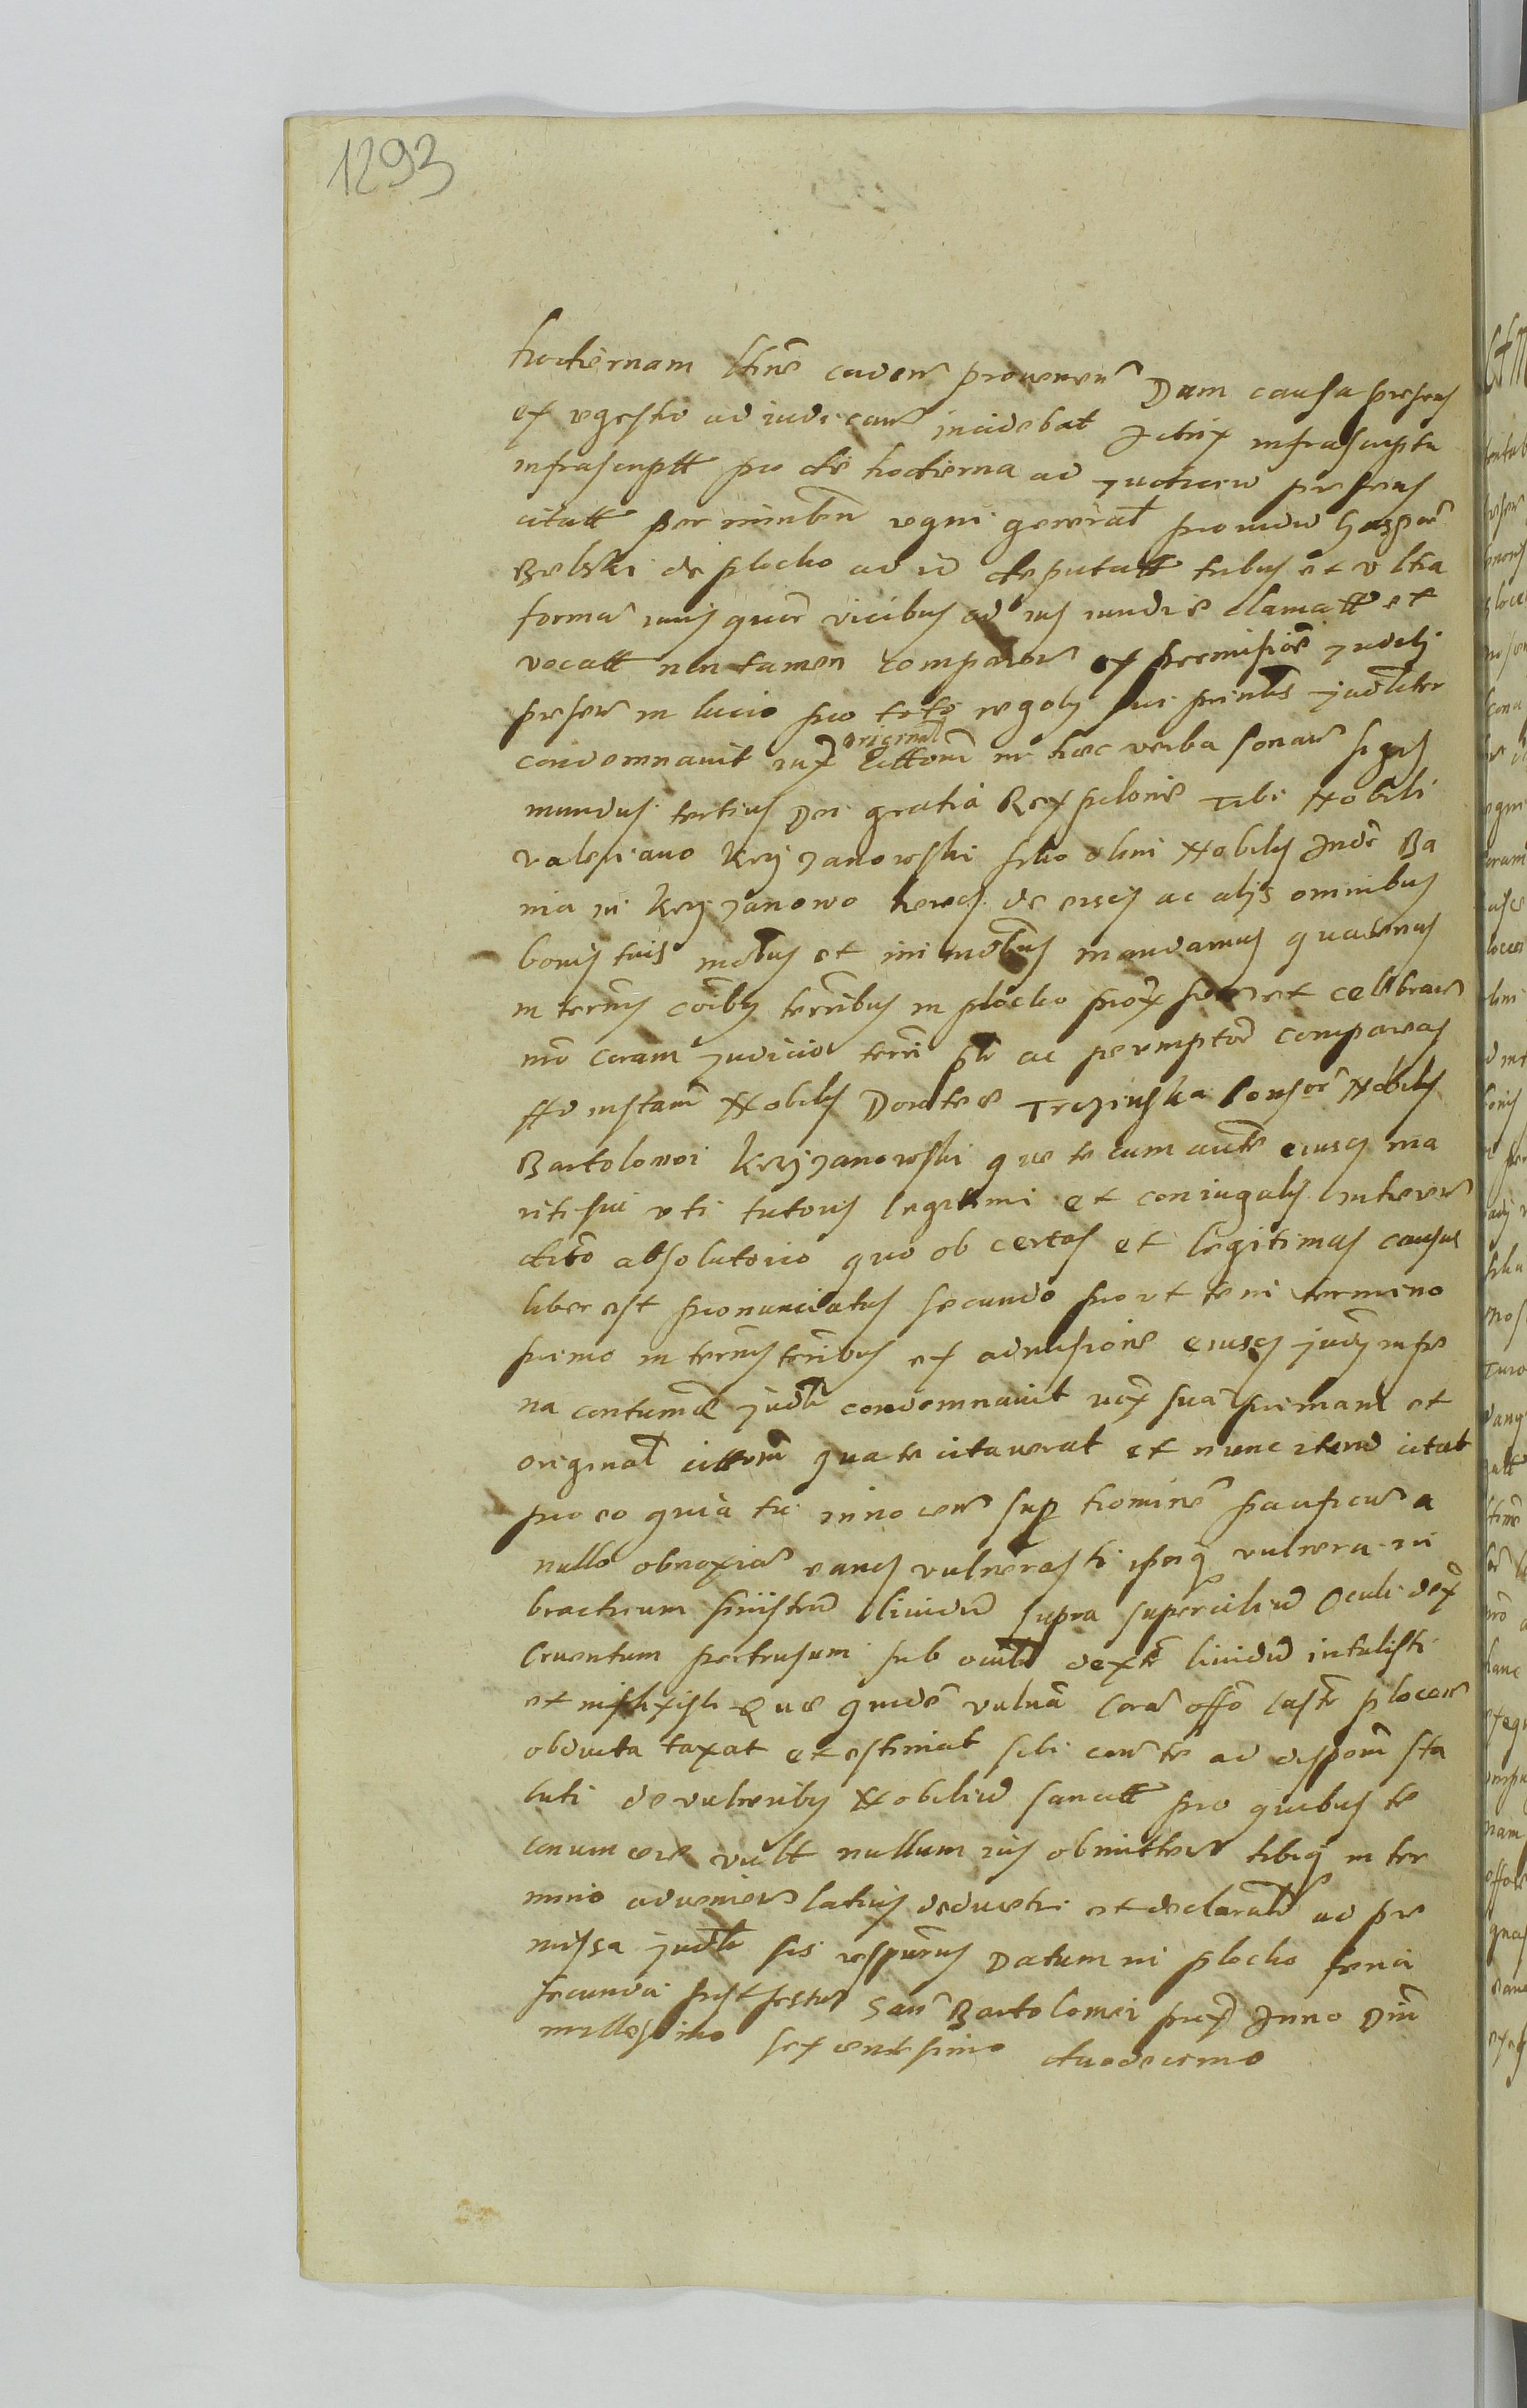 1293
hodiernam ltime caden provenien Dum causa presens
ex regestro ad iudican incidebat Actrix infrascripta
infrascriptt pro die hodierna ad judicium presens
citatt per ministm regni general providu Gaspar
Belski de plocko ad id deputatt tribus et ultra
forma iuris quatr vicibus ad ius iudicie clamatt et
vocatt non tamen comparen ex permissione judicij
presen in lucro pro toto negoty sui prints judlter
condemnavit iux original cittoni in haec verba sonan Sigis
mundus tertius Dei gratia Rex polonie Tibi Nobili
Valeriano Krzyzanowski filio olim Nobilis Andr Ba
nia in Krzyzanowo hered de eiscq ac alys omnibus
bonis tuis mobus et immobus mandamus quatenus
in termis coibus terribus in plocko prox fien et celebran
mo coram judicio terri plr ac peremptor compareas
Ad instam Nobilis Dorotee Trzcinska consor Nobilis
Bartolomei Krzyzanowski que te cum aucte eiuscq ma
riti sui uti tutoris legitimi et coniugalis inheren
dicto absolutorio quo ob certas et legitimas causas
liber est pronunciatus secundo prout te in termino
primo in termis terribus ex admissione eiuscq judy in pe
na contumae judlr condemnavit iux sua primam et
original cittoem qua te citaverat et nunc iterum citat
pro eo quia tu innocen sup homine pacificum a
nullo obnoxia eancq vulnerasti ipsiq vulnera in
brachium sinistrum lividum supra supercilium Oculi dex
Cruentum pertusum sub oculo dextr lividum intulisti
et inflixisti Que quide vulna cora offo castr plocen
obducta taxat et estimat sibi coram te ad dispom sta
tuti de vulneribus Nobilium sancitt pro quibus te
convincere vult nullum ius obmitten tibiq in ter
mino advenien latius deducetr et declarabr ad pre
missa judlr sis respurus Datum in plocko feria
secunda post festum San Bartolomei prox Anno Dni
millesimo sexcentesimo duodecimo